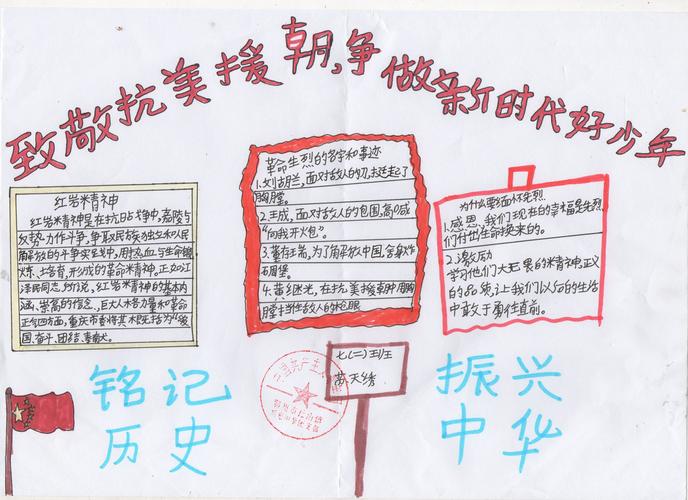 致敬抗美援朝,争做新时代好少年
红岩精神
红岩精神是在抗日战争中,嘉陵与
反势力作斗争,争取民族独立和人民
解放的斗争实践中,用热血与生命锻
炼、培育,形成的革命精神,正如江
泽民同志所说,红岩精神的基本内
涵、崇高的信念、巨大人格力量和革命
正气四方面,重庆市委将其概括为“爱
国、奋斗、团结、奉献。
革命先烈的名字和事迹
1.刘胡兰,面对敌人的刀,挺起了
胸膛。
2.王成,面对敌人的包围,高喊
“向我开火包”。
3.董存瑞,为了解放中国,舍身炸
石周堡。
4.黄继光,在抗美援朝中用胸
膛挡住敌人的枪眼
为什么要缅怀先烈
1.感恩、我们现在的幸福是先烈
们付出生命换来的。
2.激励
学习他们大无畏的精神,正义
的品质,让我们以后的生活
中敢于勇往直前。
七(二)班
苗天绣
铭记
历史
振兴
中华